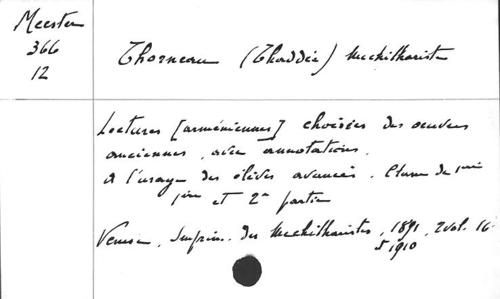 Meester
366
12
Thorneau (Thaddée) Mechithariste
Lectures [arméniennes] choisies des oeuvres
anciennes, avec annotations.
A l'usage des élèves avancés. Classe de
1ère et 2e partie
Venise, Imprim. des Mechitharistes, 1891, 2 vol. 16°
1910